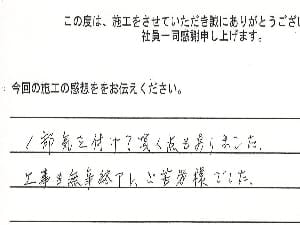 この度は、施工をさせていただき誠にありがとうござい
社員一同感謝申し上げます。
今回の施工の感想ををお伝えください。
1部気を付けて頂く点もありました。
工事も無事終了し、ご苦労様でした。